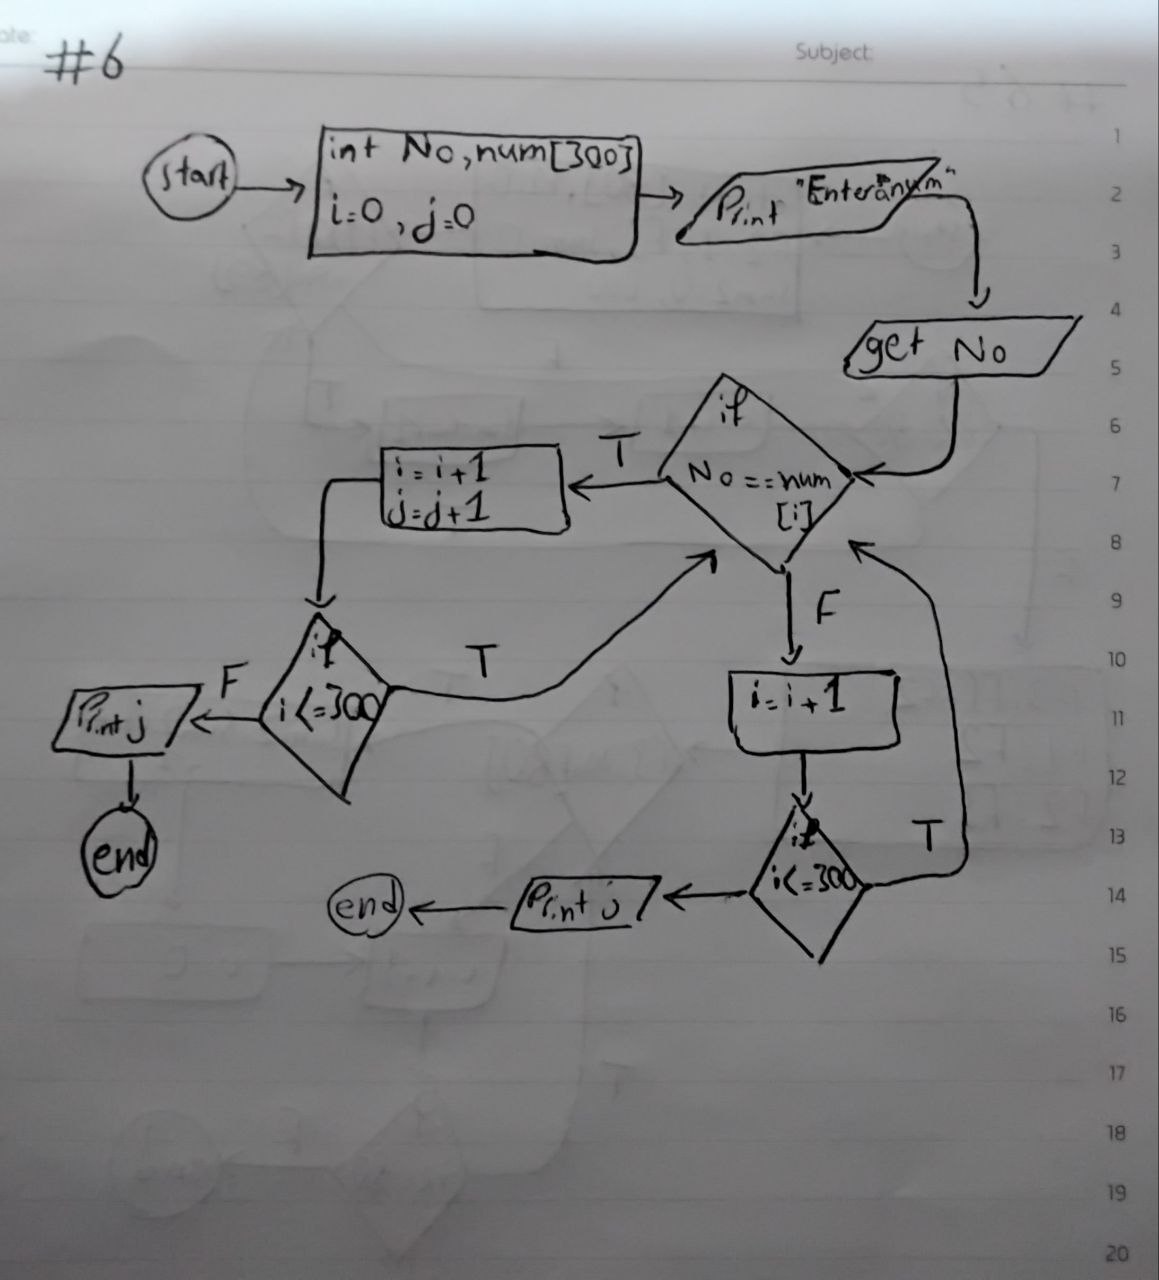 ate:
#6
Subject:
start
int No, num[300]
i=0, j=0
Print "Enter a num"
get No
if
No == num
[i]
T
i = i+1
j=j+1
F
T
if
i<=300
F
Print j
end
i=i+1
if
i<=300
T
Print j
end
1
2
3
4
5
6
7
8
9
10
11
12
13
14
15
16
17
18
19
20